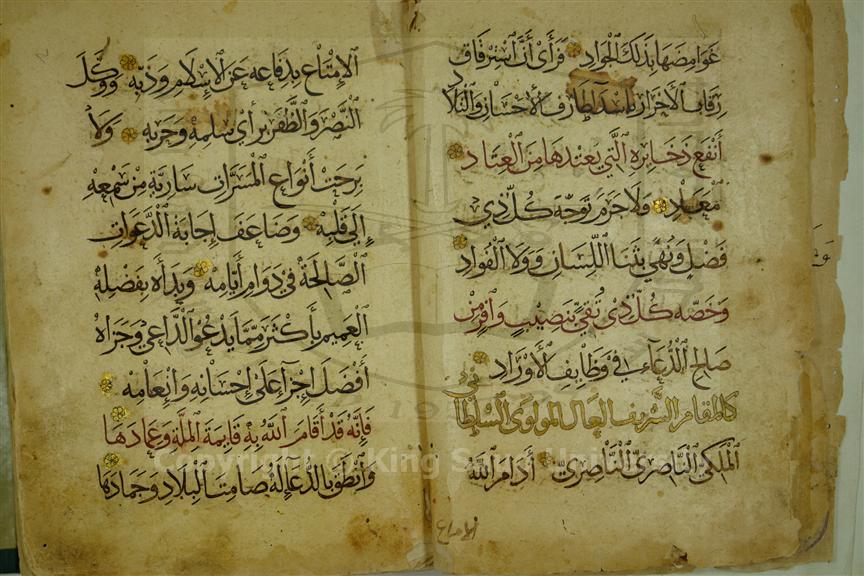 غَوَامِضَهَا بِذَلِكَ الْجَوَادِ فَرَأَى أَنَّ اسْتِرْقَاقَ
رِقَابِ الْأَحْرَارِ بِإِسْدَاءِ طَارِفِ الْإِحْسَانِ وَالتِّلَا
أَنْفَعُ ذَخَايِرِهِ الَّتِي يَعْتَدُّهَا مِنَ الْعَتَادِ
وَلَا جَرَمَ تَوَجَّهَ كُلُّ ذِي
فَضْلٍ وَنُهًى بِثَنَا اللِّسَانِ وَوَلَا الْفُوَادِ
وَخَصَّهُ كُلُّ ذِي تُقًى بِنَصِيبٍ وَافِرٍ مِنْ
صَالِحِ الدُّعَاءِ فِي وَظَايِفِ الْأَوْرَادِ
كَالمقَامِ الشَّرِيفِ العَالِي المَوْلَوِيِّ السُّلْطَانِي
الْمَلَكِيِّ النَّاصِرِيِّ النَّاصِرِيِّ أَدَامَ اللهُ
الْإِمْتَاعَ بِدِفَاعِهِ عَنِ الْإِسْلَامِ وَذَبِّهِ وَوَكَّلَ
النَّصْرَ وَالظَّفَرَ بِرَأْيِ سِلْمِهِ وَحَرْبِهِ وَلَا
بَرِحَتْ أَنْوَاعُ الْمَسَرَّاتِ سَارِيَةً مِنْ سَمْعِهِ
إِلَى قَلْبِهِ وَضَاعَفَ إِجَابَةَ الدَّعَوَاتِ
الصَّالِحَةِ فِي دَوَامِ أَيَّامِهِ وَبَدَأَهُ بِفَضْلِهِ
الْعَمِيمِ بِأَكْثَرَ مِمَّا يَدْعُو الدَّاعِي وَجَزَاهُ
أَفْضَلَ إِجْزَاءٍ عَلَى إِحْسَانِهِ وَإِنْعَامِهِ
فَإِنَّهُ قَدْ أَقَامَ اللهُ بِهِ قَايِمَةَ الْمِلَّةِ وَعِمَادَهَا
وَأَنْطَقَ بِالدُّعَاءِ لَهُ صَامِتَ الْبِلَادِ وَجَمَادَهَا
الامتاع
Copyright © King Saud University